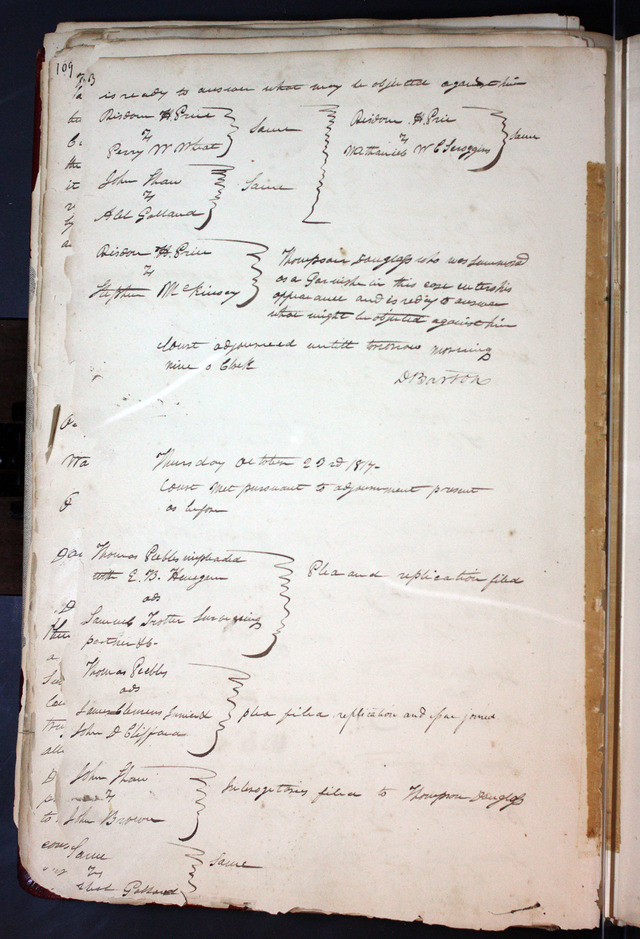 109
is ready to answer what may be objected against him
Risdon H. Price
vs
Perry W Wheat
Same
Risdon H. Price
vs
Nathaniel W C Scroggins
Same
John Shaw
vs
Abel Galland
Same
Risdon H. Price
vs
Stephen McKinsey
Thompson Douglass who was summoned
as a Garnishee in this case enters his
appearance and is redy to answer
what might be objected against him
Court adjourened untill tomorrow morning
nine o Clock
D Barton
Thursday October 23rd 1817-
Court Met pursuant to adjournment present
as before
Thomas Peebles impleaded
with E. B.
ads
Samuel Trotter Surviving
partner &c-
Plea and replication filed
Thomas Peebles
ads
John D Clifford
plea filed replication and issue joined
John Shaw
vs
John Brown
Interogitories filed to Thompson Douglass
Same
vs
Abel Galland
Same